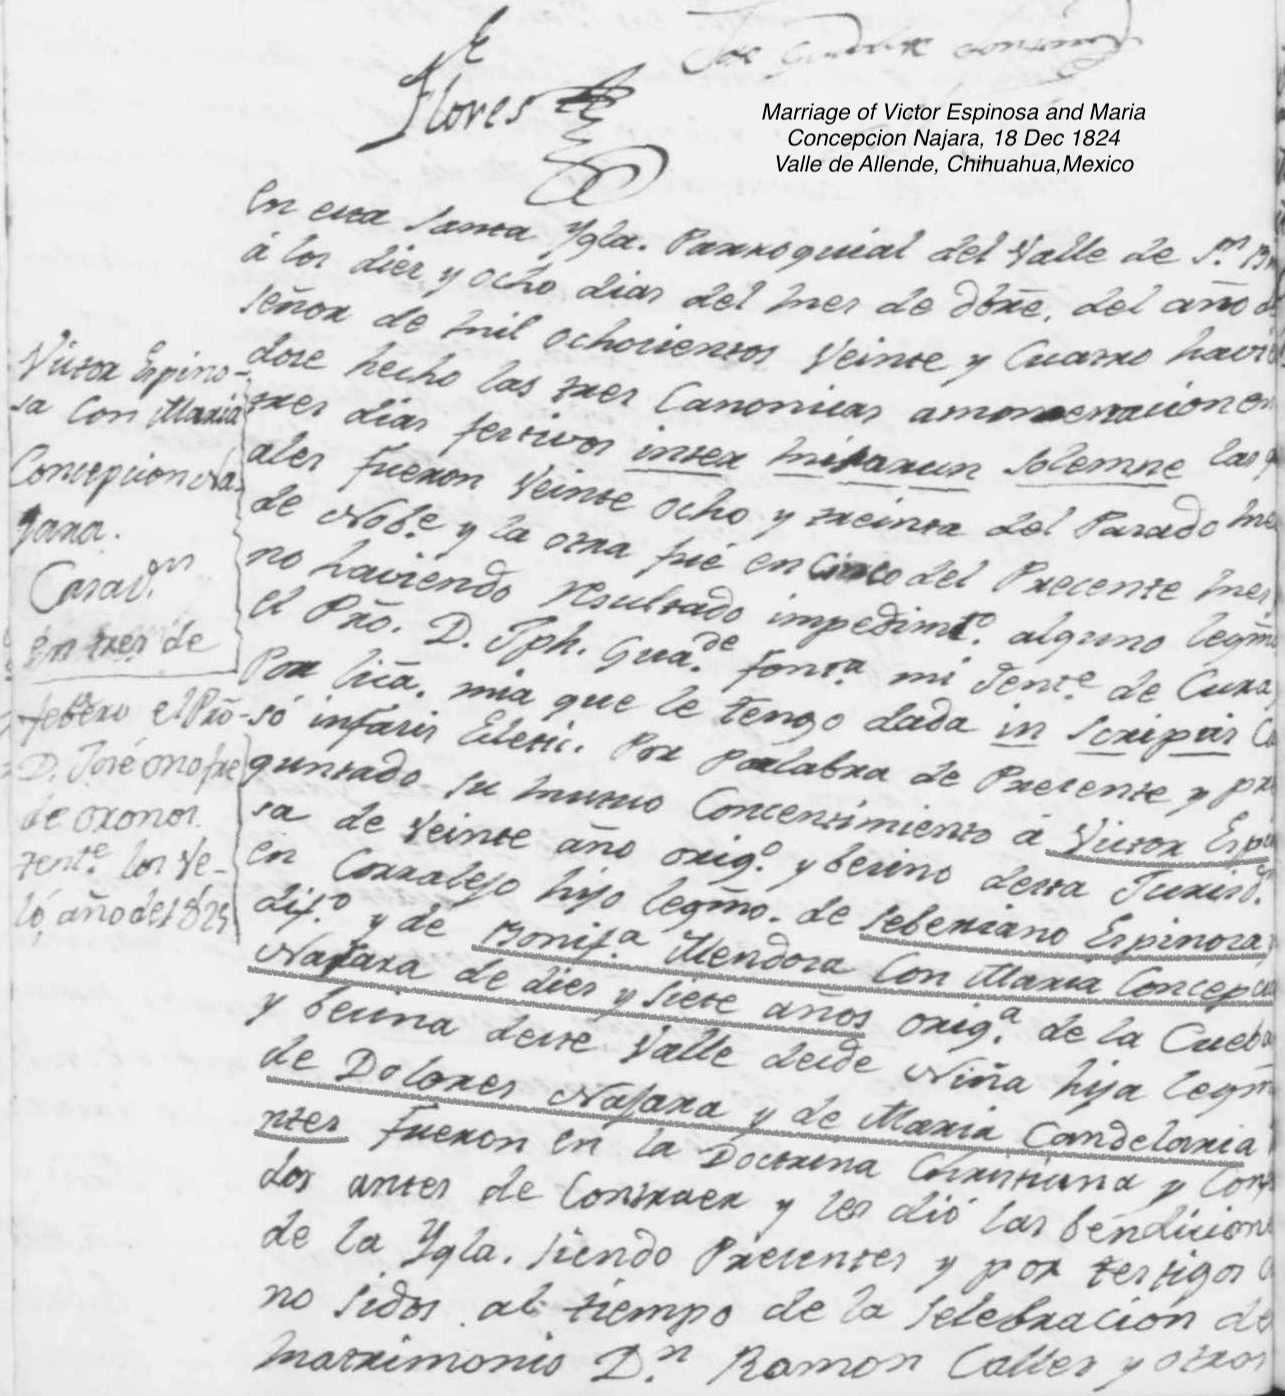 Flores
Marriage of Victor Espinosa and Maria
Concepcion Najara, 18 Dec 1824
Valle de Allende, Chihuahua,Mexico
Victor Espino-
sa con Maria
Concepcion Na-
jara.
Casad.os
en tres de
febrero el Pño
D. José onofre
de oronos
tent.e los Ve-
ló, año de 1825
En esta Santa Ygla. Parroquial del Valle de S.n
á los dies y ocho dias del mes de dbre. del año
señor de mil ochocientos Veinte y Cuatro
dose hecho las tres Canonicas amonestacion
tres dias festivos inter misarun solemne las
ales fueron Veinte ocho y treinta del Pasado
de Nobe y la otra fué en Cinco del Precente mes
no haviendo resultado impedimto. alguno
el Pño. D. Jph. Guade. Fonta. mi Tente. de Cura
Por liña. mia que le tengo dada in scripis
só infasis Eclesic. Por Palabra de Presente y
guntado su mutuo Concentimiento á Victor
sa de Veinte año orig.o y becino desta Jurisd.
en Corralejo hijo legmo. de Seberiano Espinosa
dif.to y de Bonif.a Mendosa Con Maria
Najara de dies y siete años orig.a de la
y becina deste Valle desde Niña hija
de Dolores Najara y de Maria Candelaria
ntes fueron en la Doctrina Christiana y
dos antes de Contraer y les dió las bendicion
de la Ygla. siendo Precentes y por testigos
no sidos al tiempo de la selebracion
matrimonio D.n Ramon Calles y otros